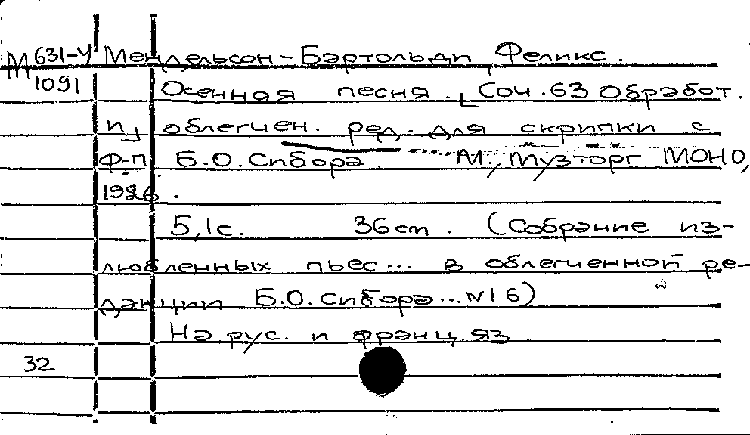 М 631-4 Мендельсон-Бартольди, Феликс.
1091 Осенная песня. [Соч. 63 Обработ.
и] облегчен. ред. для скрипки с
ф-п Б.О. Сибора М., Музторг МОНО,
1926.
5,1с. 36 см. (Собрание из-
любленных пьес... в облегченной ре-
дакции Б.О. Сибора... N 16)
На рус. и франц. яз
32